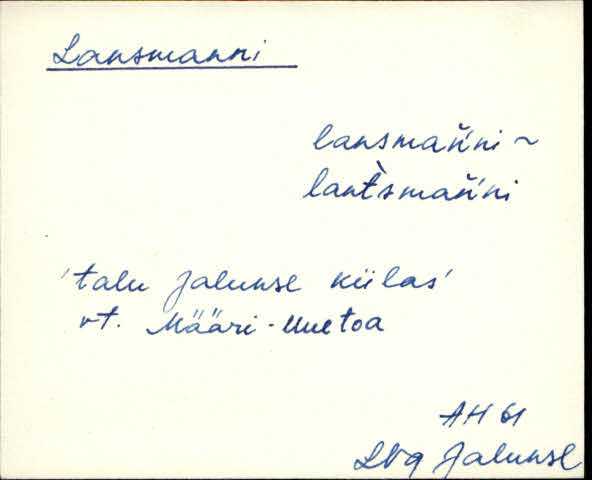 Lansmanni
lansmańńi ~
lant̀smańńi
'talu Jalunse külas'
vt. Määri-Uuetoa
AH 61
Lng Jalunse